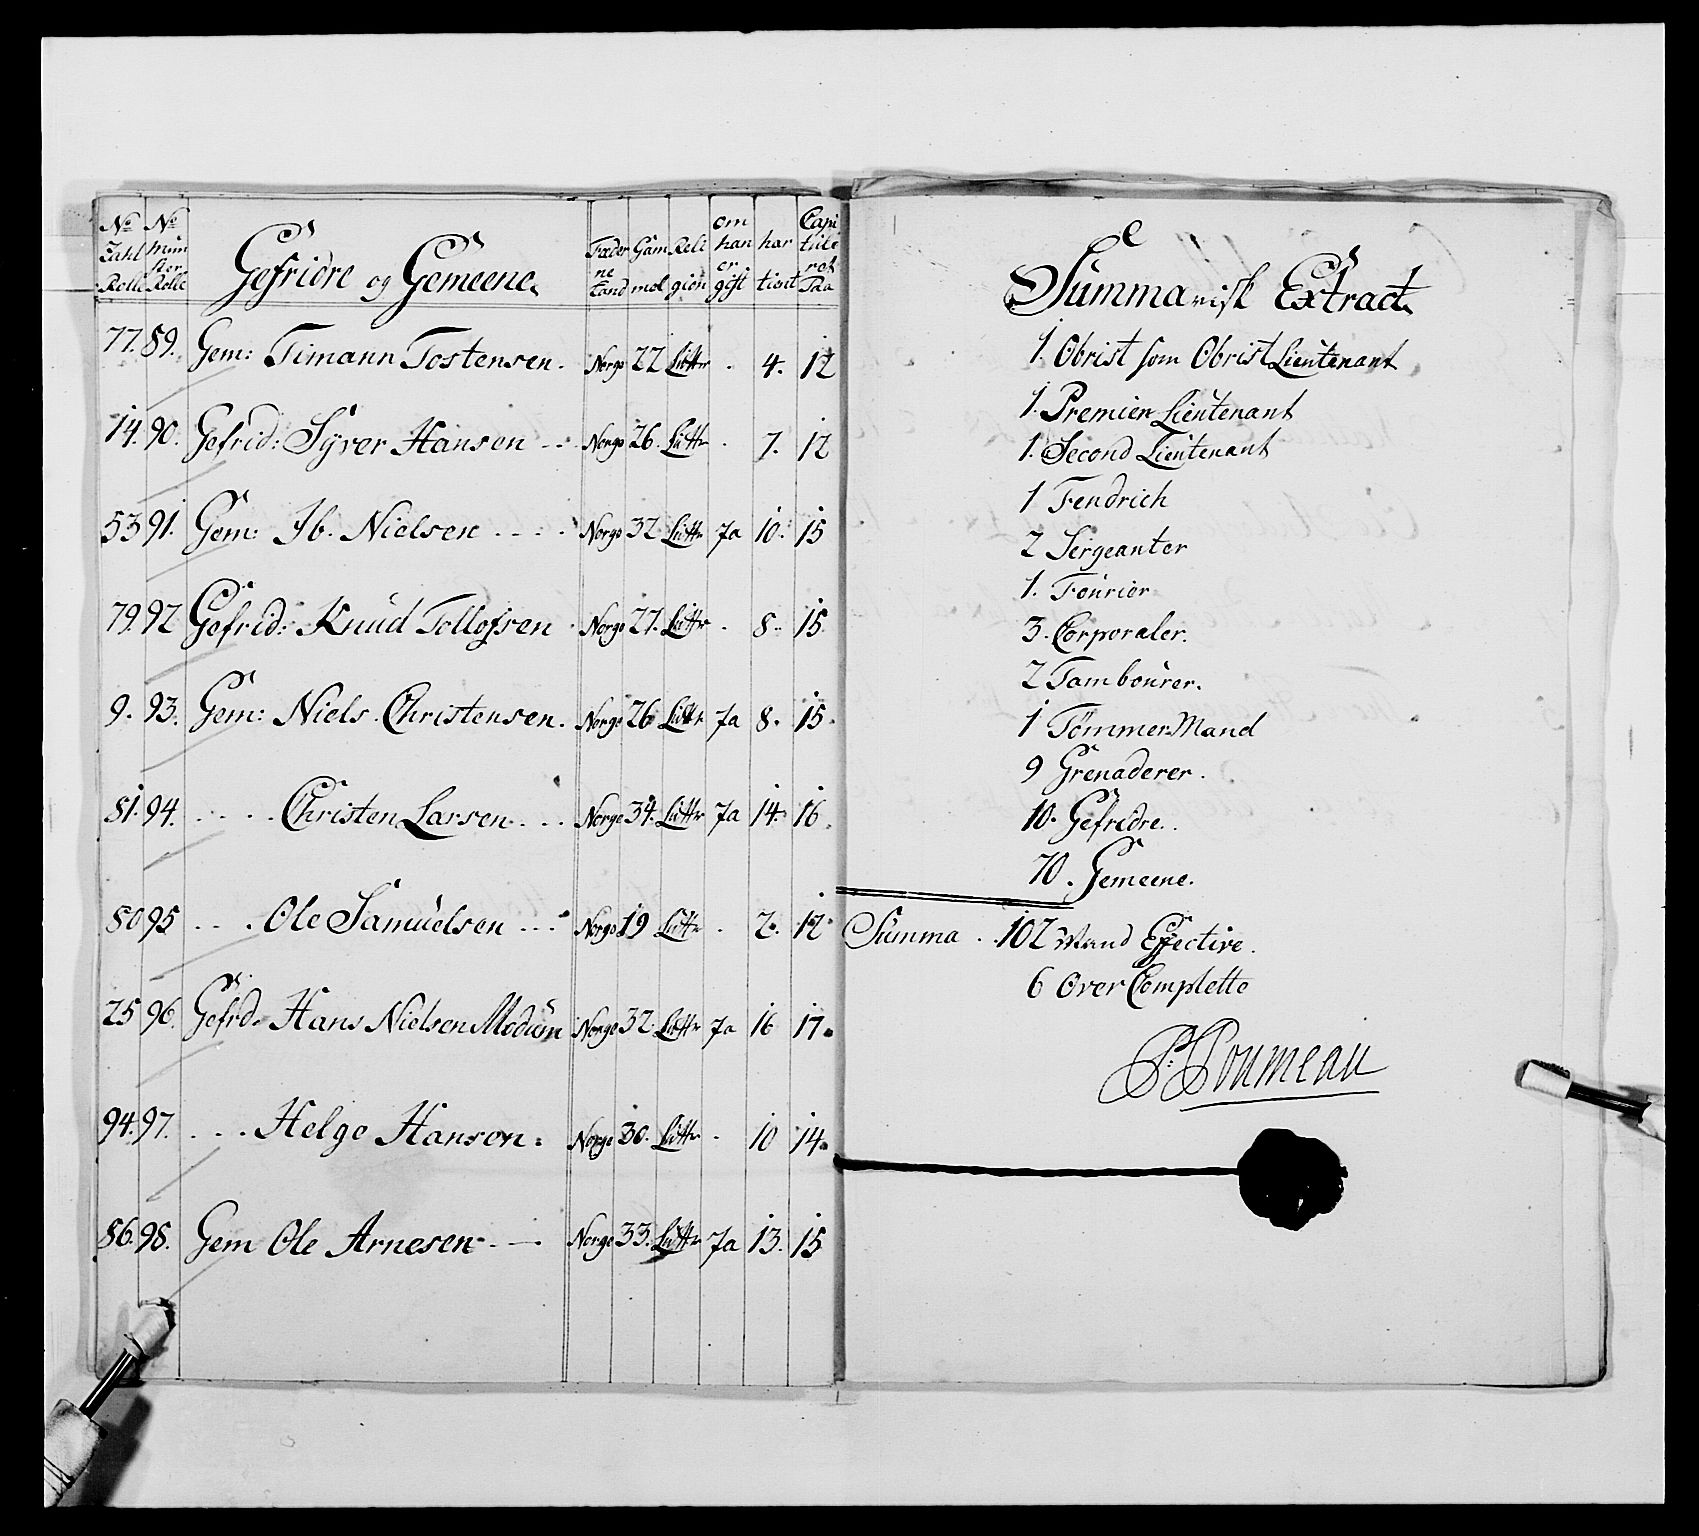 No Zahl Rolle | No Mün ster Rolle | Gefridre og Gemeene. | Fæder ne Land | Gam mel | Reli gion | om han er gift | har tient | Capi tule ret Paa
77. 89. Gem: Timann Tostensen. Norge 22 Lutter . 4. 12
14. 90. Gefrid: Syver Hansen -- Norge 26. Lutter . 7. 12
53 91. Gem: Ib. Nielsen ---- Norge 32 Lutter Ja 10. 15
79. 92 Gefrid: Knud Tollofsen Norge 27. Lutter . 8. 15.
9. 93. Gem: Niels Christensen. Norge 26 Lutter Ja 8. 15.
81. 94. .... Christen Larsen... Norge 34. Lutter Ja 14. 16.
80 95 ... Ole Samüelsen --- Norge 19 Lutter . 2. 12
25 96. Gefrd. Hans Nielsen Modüm Norge 32 Lutter Ja 16 17.
94. 97. .... Helge Hansen. Norge 30. Lutter . 10 14.
86. 98. Gem Ole Arnesen --- Norge 33. Lutter Ja 13. 15
Summarisk Extract.
1. Obrist som Obrist Lieutenant
1. Premier Lieutenant
1. Second Lieutenant
1 Fendrich
2 Sergeanter
1. Fourier
3. Corporaler.
2 Tambourer.
1 Tømmer Mand
9 Grenaderer.
10. Gefridre.
70. Gemeene.
Summa . 102 Mand Effective.
6 Over Complette
P: Poumeau